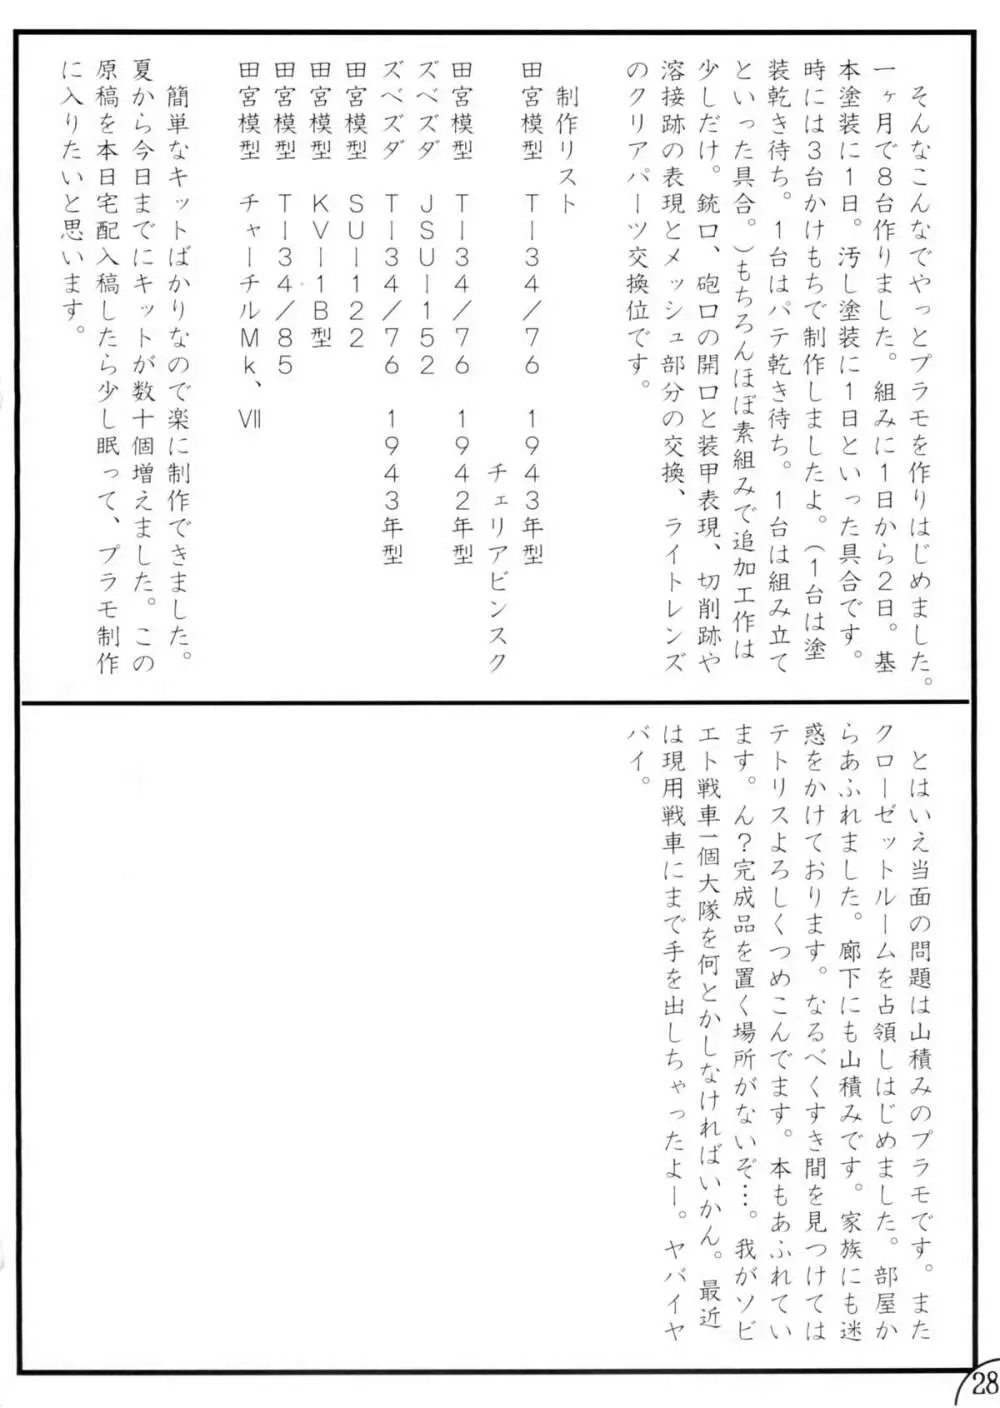 そんなこんなでやっとプラモを作りはじめました。
一ヶ月で8台作りました。組みに1日から2日。基
本塗装に1日。汚し塗装に1日といった具合です。
時には3台かけもちで制作しましたよ。（1台は塗
装乾き待ち。1台はパテ乾き待ち。1台は組み立て
といった具合。）もちろんほぼ素組みで追加工作は
少しだけ。銃口、砲口の開口と装甲表現、切削跡や
溶接跡の表現とメッシュ部分の交換、ライトレンズ
のクリアパーツ交換位です。
制作リスト
田宮模型　T－34／76　1943年型
チェリアビンスク
田宮模型　T－34／76　1942年型
ズベズダ　JSU－152
ズベズダ　T－34／76　1943年型
田宮模型　SU－122
田宮模型　KV－1B型
田宮模型　T－34／85
田宮模型　チャーチルMk、Ⅶ
簡単なキットばかりなので楽に制作できました。
夏から今日までにキットが数十個増えました。この
原稿を本日宅配入稿したら少し眠って、プラモ制作
に入りたいと思います。
とはいえ当面の問題は山積みのプラモです。また
クローゼットルームを占領しはじめました。部屋か
らあふれました。廊下にも山積みです。家族にも迷
惑をかけております。なるべくすき間を見つけては
テトリスよろしくつめこんでます。本もあふれてい
ます。ん？完成品を置く場所がないぞ…。我がソビ
エト戦車一個大隊を何とかしなければいかん。最近
は現用戦車にまで手を出しちゃったよー。ヤバイヤ
バイ。
28